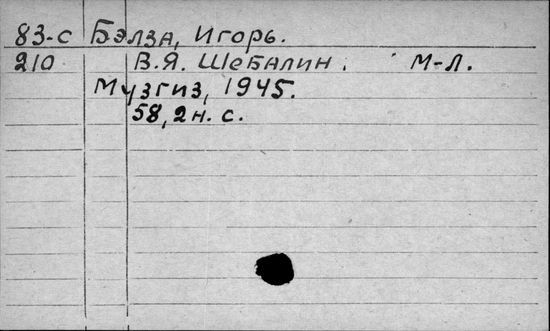 83-с Бэлза, Игорь.
210 В.Я. Шебалин. М-Л.
Музгиз, 1945.
58, 2н. с.